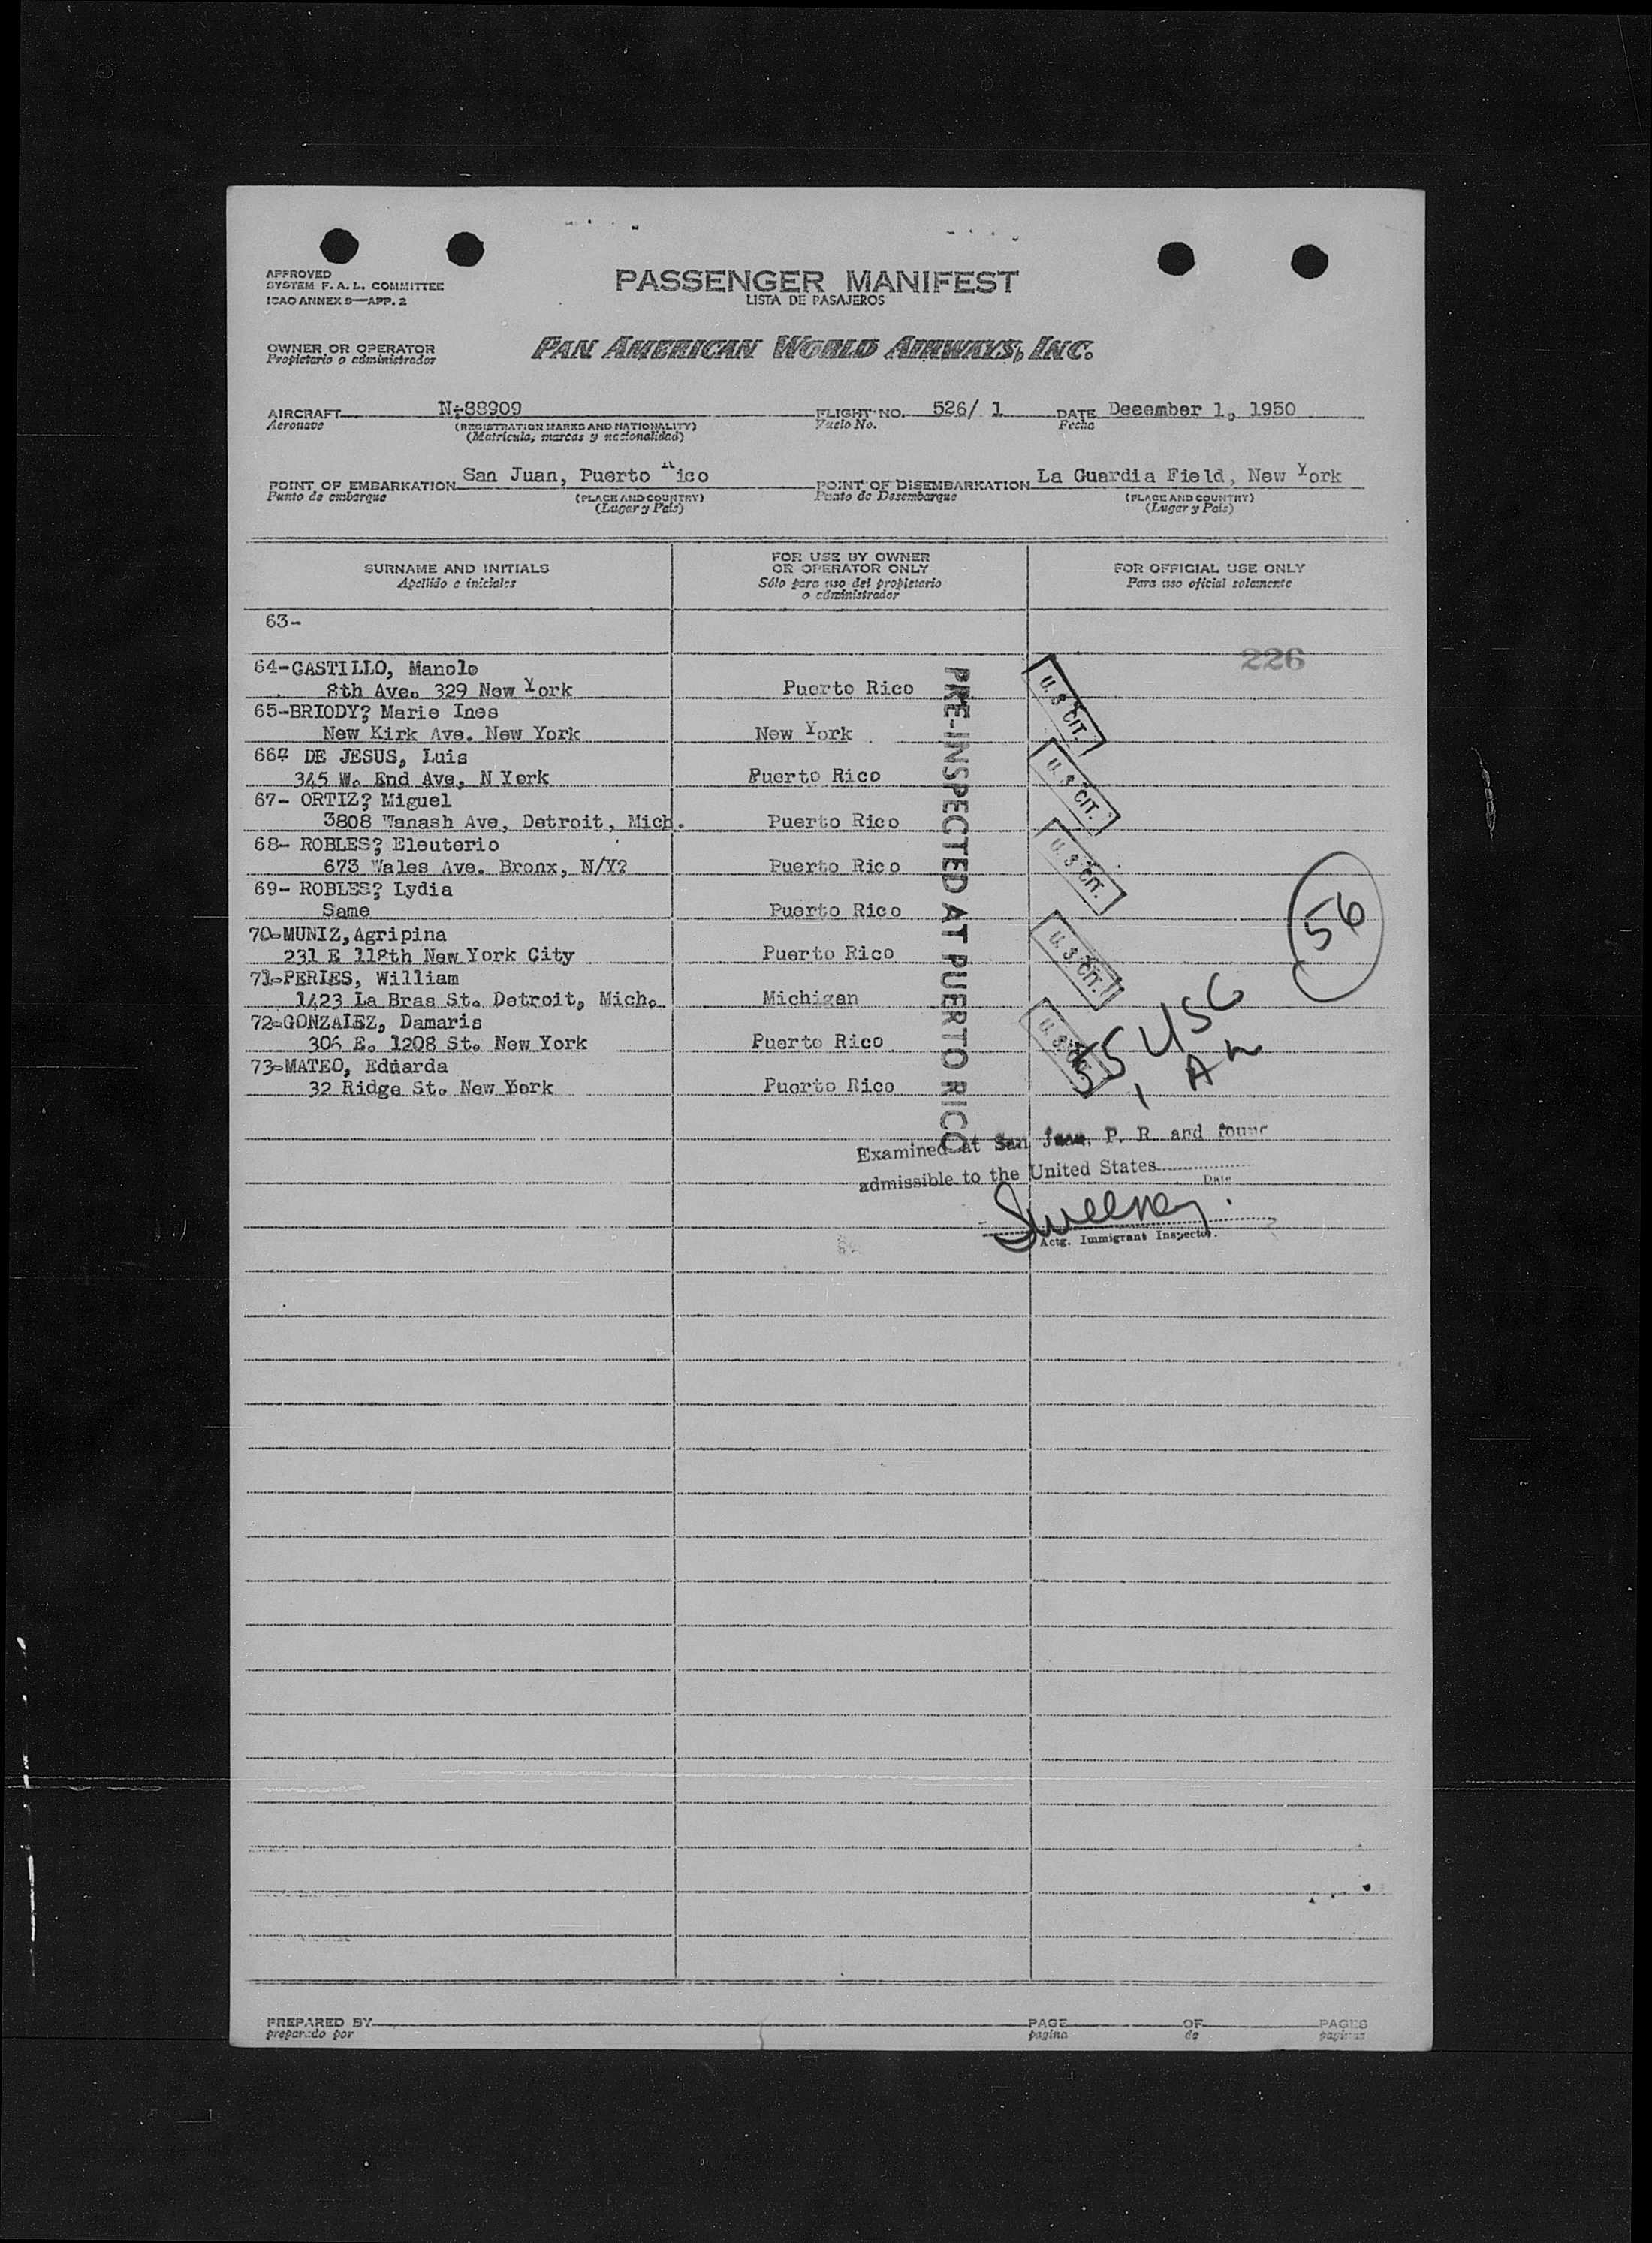 APPROVED
SYSTEM F. A. L. COMMITTEE
ICAO ANNEX 9—APP. 2
PASSENGER MANIFEST
LISTA DE PASAJEROS
OWNER OR OPERATOR
Propietario o administrador
PAN AMERICAN WORLD AIRWAYS, INC.
AIRCRAFT N-88909 FLIGHT NO. 526/ 1 DATE December 1, 1950
Aeronave (REGISTRATION MARKS AND NATIONALITY) Vuelo No. Fecha
(Matrícula, marcas y nacionalidad)
POINT OF EMBARKATION San Juan, Puerto Rico POINT OF DISEMBARKATION La Guardia Field, New York
Punto de embarque (PLACE AND COUNTRY) Punto de Desembarque (PLACE AND COUNTRY)
(Lugar y País) (Lugar y País)
SURNAME AND INITIALS
Apellido e iniciales
FOR USE BY OWNER
OR OPERATOR ONLY
Sólo para uso del propietario
o administrador
FOR OFFICIAL USE ONLY
Para uso oficial solamente
63-
226
64-CASTILLO, Manolo
8th Ave. 329 New York Puerto Rico
65-BRIODY? Marie Ines
New Kirk Ave. New York New York
66- DE JESUS, Luis
345 W. End Ave, N York Puerto Rico
67- ORTIZ? Miguel
3808 Wanash Ave, Detroit, Mich. Puerto Rico
68- ROBLES? Eleuterio
673 Wales Ave. Bronx, N/Y? Puerto Rico
69- ROBLES? Lydia
Same Puerto Rico
70-MUNIZ, Agripina
231 E 118th New York City Puerto Rico
71-PERIES, William
1423 La Bras St. Detroit, Mich. Michigan
72-GONZALEZ, Damaris
306 E. 1208 St. New York Puerto Rico
73-MATEO, Eduarda
32 Ridge St. New York Puerto Rico
PRE-INSPECTED AT PUERTO RICO
U. S CIT.
U. S CIT.
U. S CIT.
U. S CIT.
U. S CIT.
56
55 USC
1 A
Examined at San Juan, P. R. and found
admissible to the United States
Date
Sweeney
Actg. Immigrant Inspector.
PREPARED BY PAGE OF PAGES
preparado por pagina de paginas